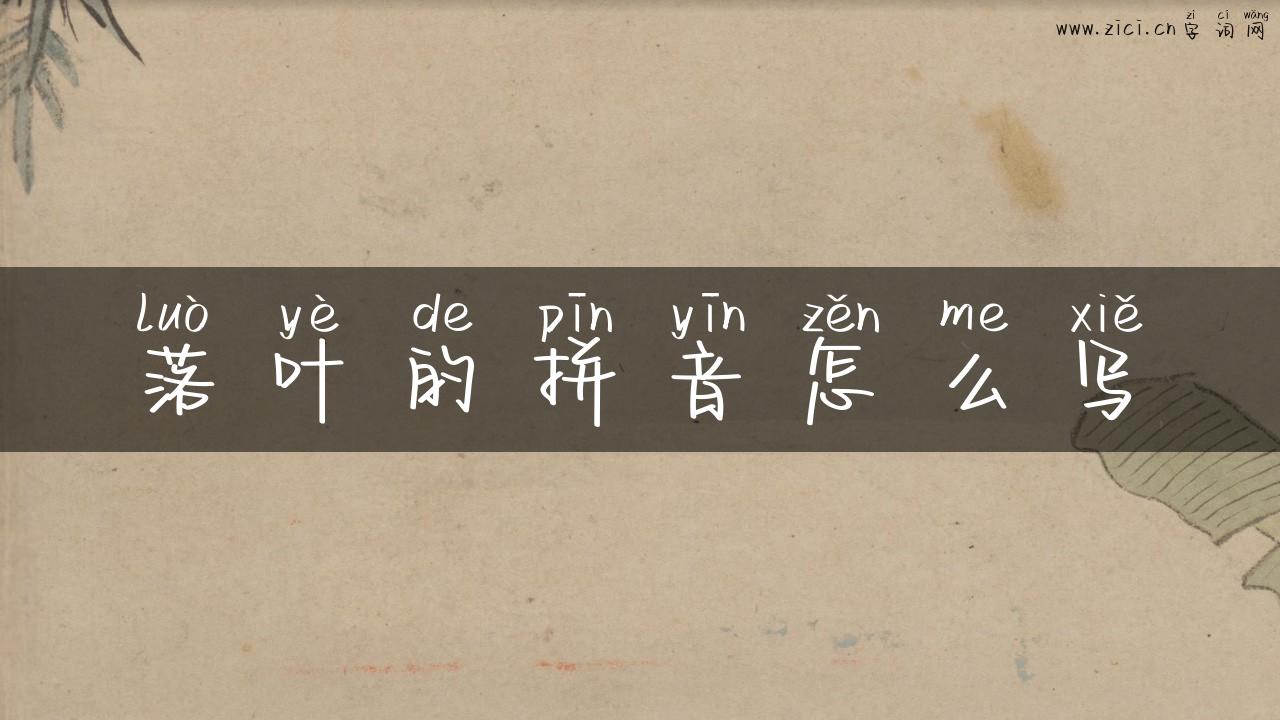 zì cí wǎng
www.zici.cn 字 词 网
luò yè de pīn yīn zěn me xiě
落 叶 的 拼 音 怎 么 写